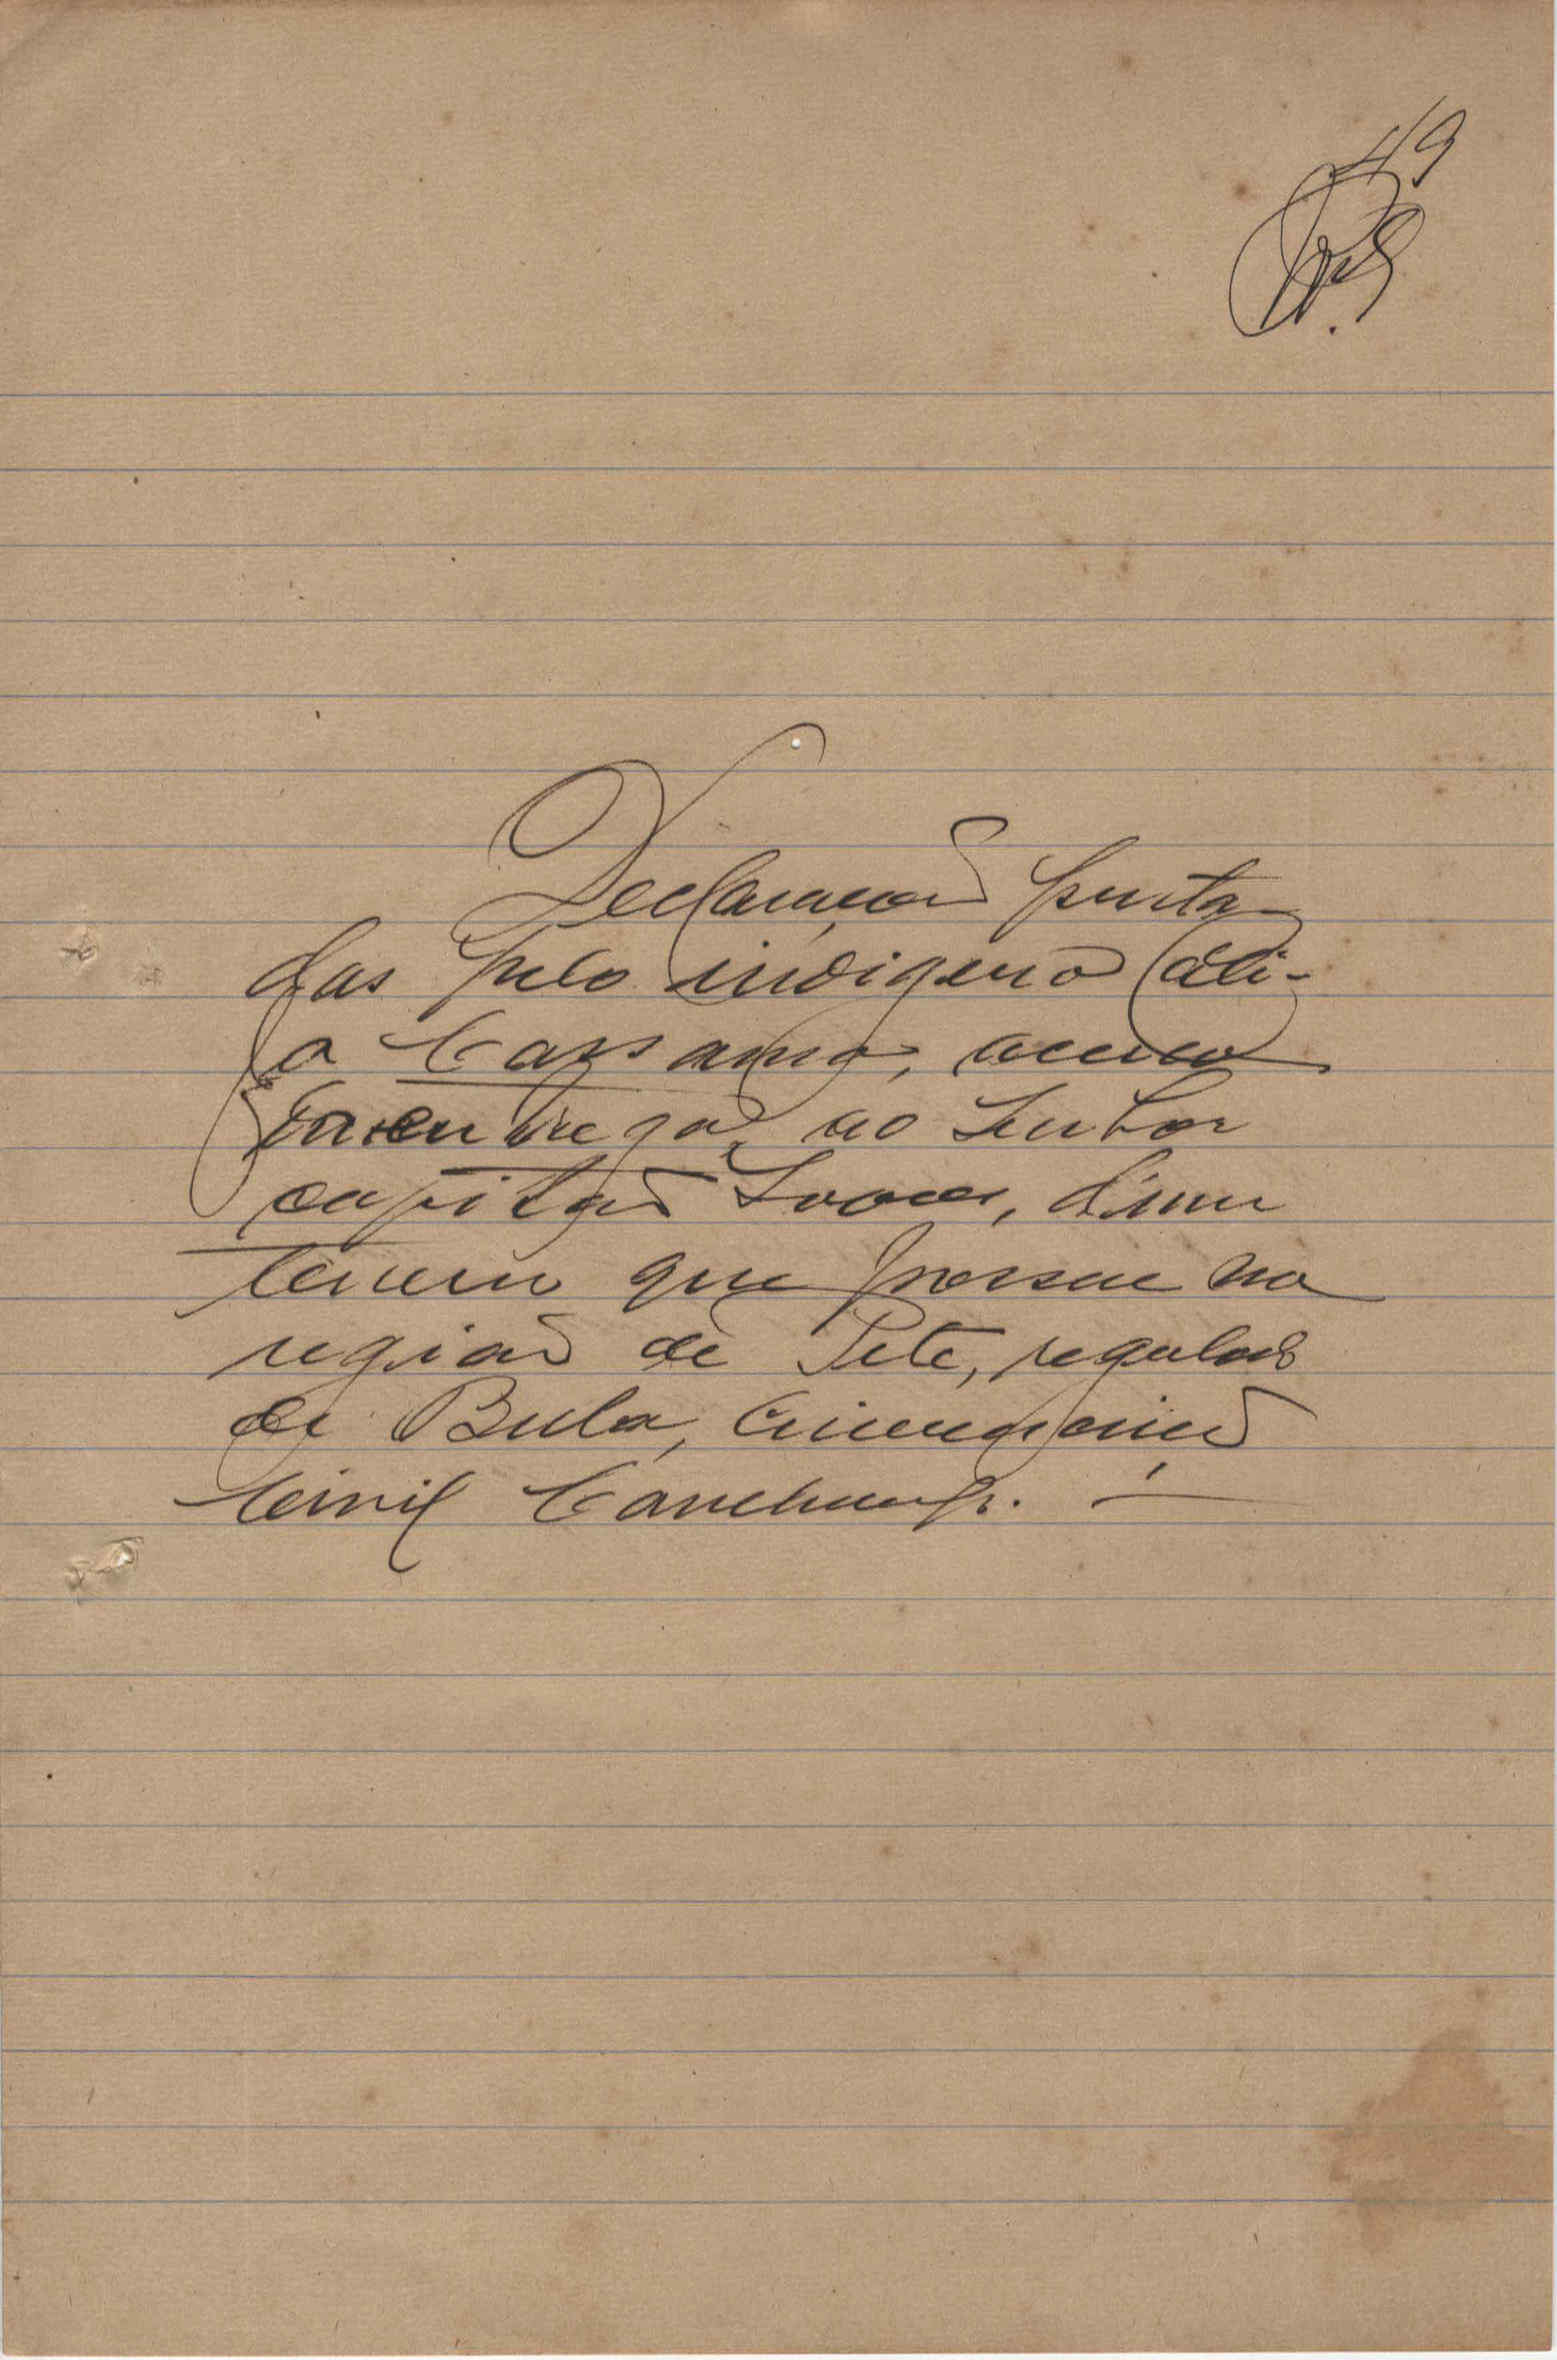 49
Declaração presta
das pelo indigena Ali-
a Cassamá, acerca
da entrega, ao Senhor
capitão, d'um
terreno que possue na
região de Pete, regulado
de Bula, Circunscrição
Civil Canchungo. —